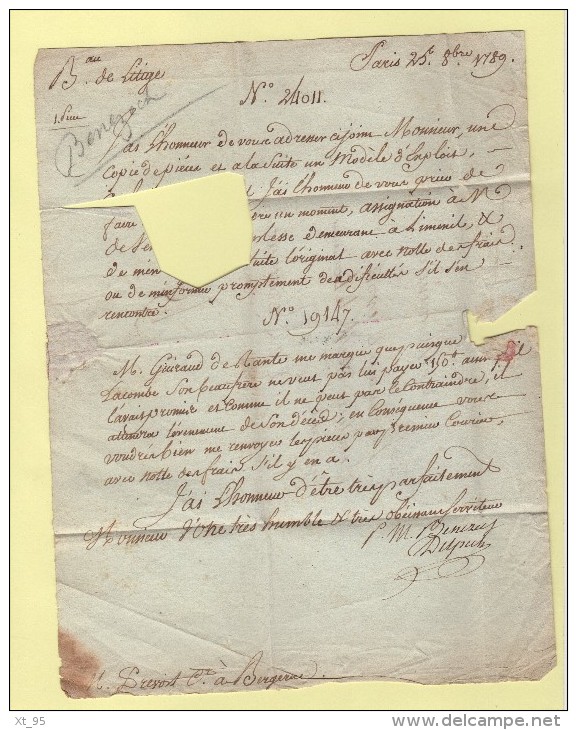 B.au de Litige
Paris 25e 8bre 1789.
N.o 24011.
1. Piece
Benezech
J'ai l'honneur de vous adresser cy joint Monsieur, une
Copie de pièces et à la Suite un Modèle d'Exploit,
J'ai l'honneur de vous prier de
faire un moment, assignation à M
de demeurant à Limeuil, &
de l'original avec notte des frais
ou de m'informer promptement des difficultés s'il s'en
rencontre.
N.o 19147.
M. Guiraud de Nante me marque que puisque
Lacombe Son beaufrere ne veut pas lui payer 150tt ainsi qu'il
l'avait promis et comme il ne peut pas le Contraindre, il
attendra l'evenement de son décéd; en Conséquence vous
voudrés bien me renvoyer les pièces par premier Courier,
avec notte des frais s'il y en a.
J'ai l'honneur d'être très parfaitement
Monsieur Votre très humble & très obeissant serviteur
P. M. Benezech
M. Prevost à Bergerac.
Xt_95
delcampe.net